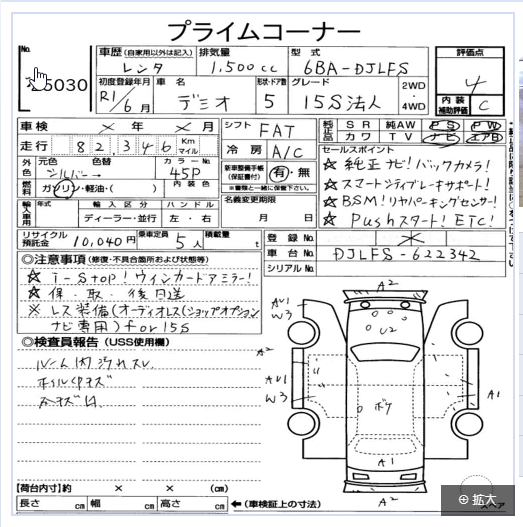 プライムコーナー
No. 5030
車歴 (自家用以外は記入) 排気量 型式 評価点
レンタ 1,500cc 6BA-DJLFS 4
初度登録年月 車名 形状・ドア数 グレード 2WD・4WD 内装補助評価 C
R1/6月 デミオ 5 15S法人
車検 × 年 × 月 シフト FAT 純正品 SR 純AW PS PW
カワ TV ナビ エアB
走行 82,346 Km マイル 冷房 A/C セールスポイント
外色 元色 色替 カラーNo. 新車整備手帳(保証書付) 有・無
シルバー 45P ※書類と一緒に保管下さい。
燃料 ガソリン・軽油・( ) 内装色 名義変更期限
輸入車用 年式 輸入区分 ハンドル 月 日
ディーラー・並行 左・右
☆ 純正ナビ!バックカメラ!
☆ スマートシティブレーキサポート!
☆ BSM!リヤパーキングセンサー!
☆ Pushスタート!ETC!
リサイクル預託金 10,040円 乗車定員 5人 積載量 t
登録No. ×
車台No. DJLFS-622342
シリアルNo.
◎注意事項 (修復・不具合箇所および状態等)
☆ i-stop!ウィンカードアミラー!
☆ 保・取 後日送
※ レス装備(オーディオレス(ショップオプション
ナビ専用) for 15S
◎検査員報告 (USS使用欄)
ルーム内汚れスレ
ホイルキズ
A2
AU1
W3
U2
A2
AU1
W3
ボケ
A1
A1
A2
【荷台内寸】約 × × (cm)
長さ cm 幅 cm 高さ cm ←(車検証上の寸法)
スペア
拡大